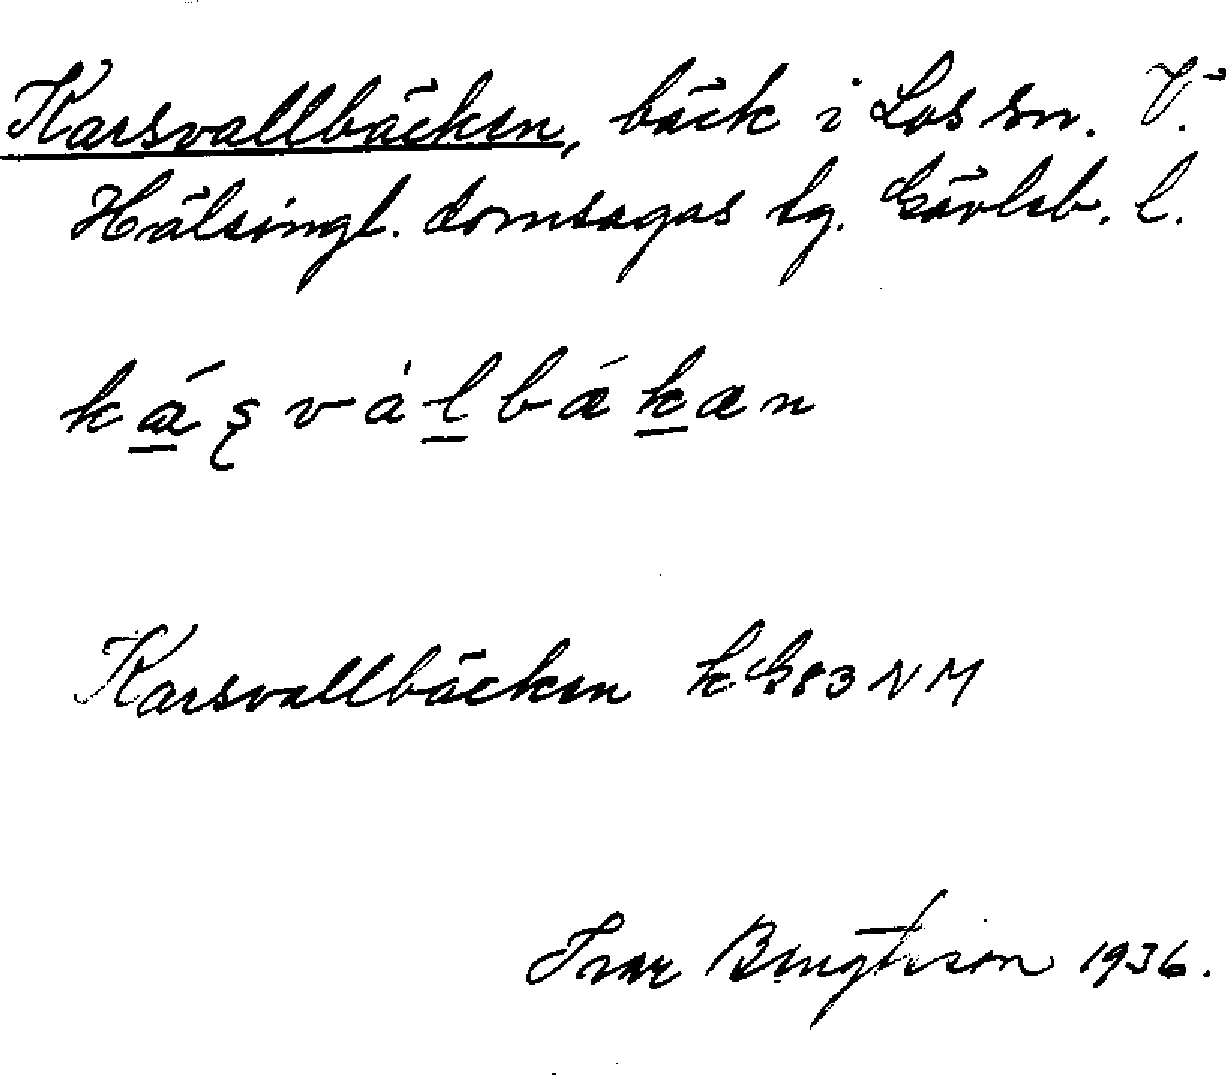 Karsvallbäcken, bäck i Los sn. V.
Hälsingl. domsagas tg. Gävleb. l.
kǽşvàl̲bǽk̲an
Karsvallbäcken kG83NM
Ivar Bengtsson 1936.